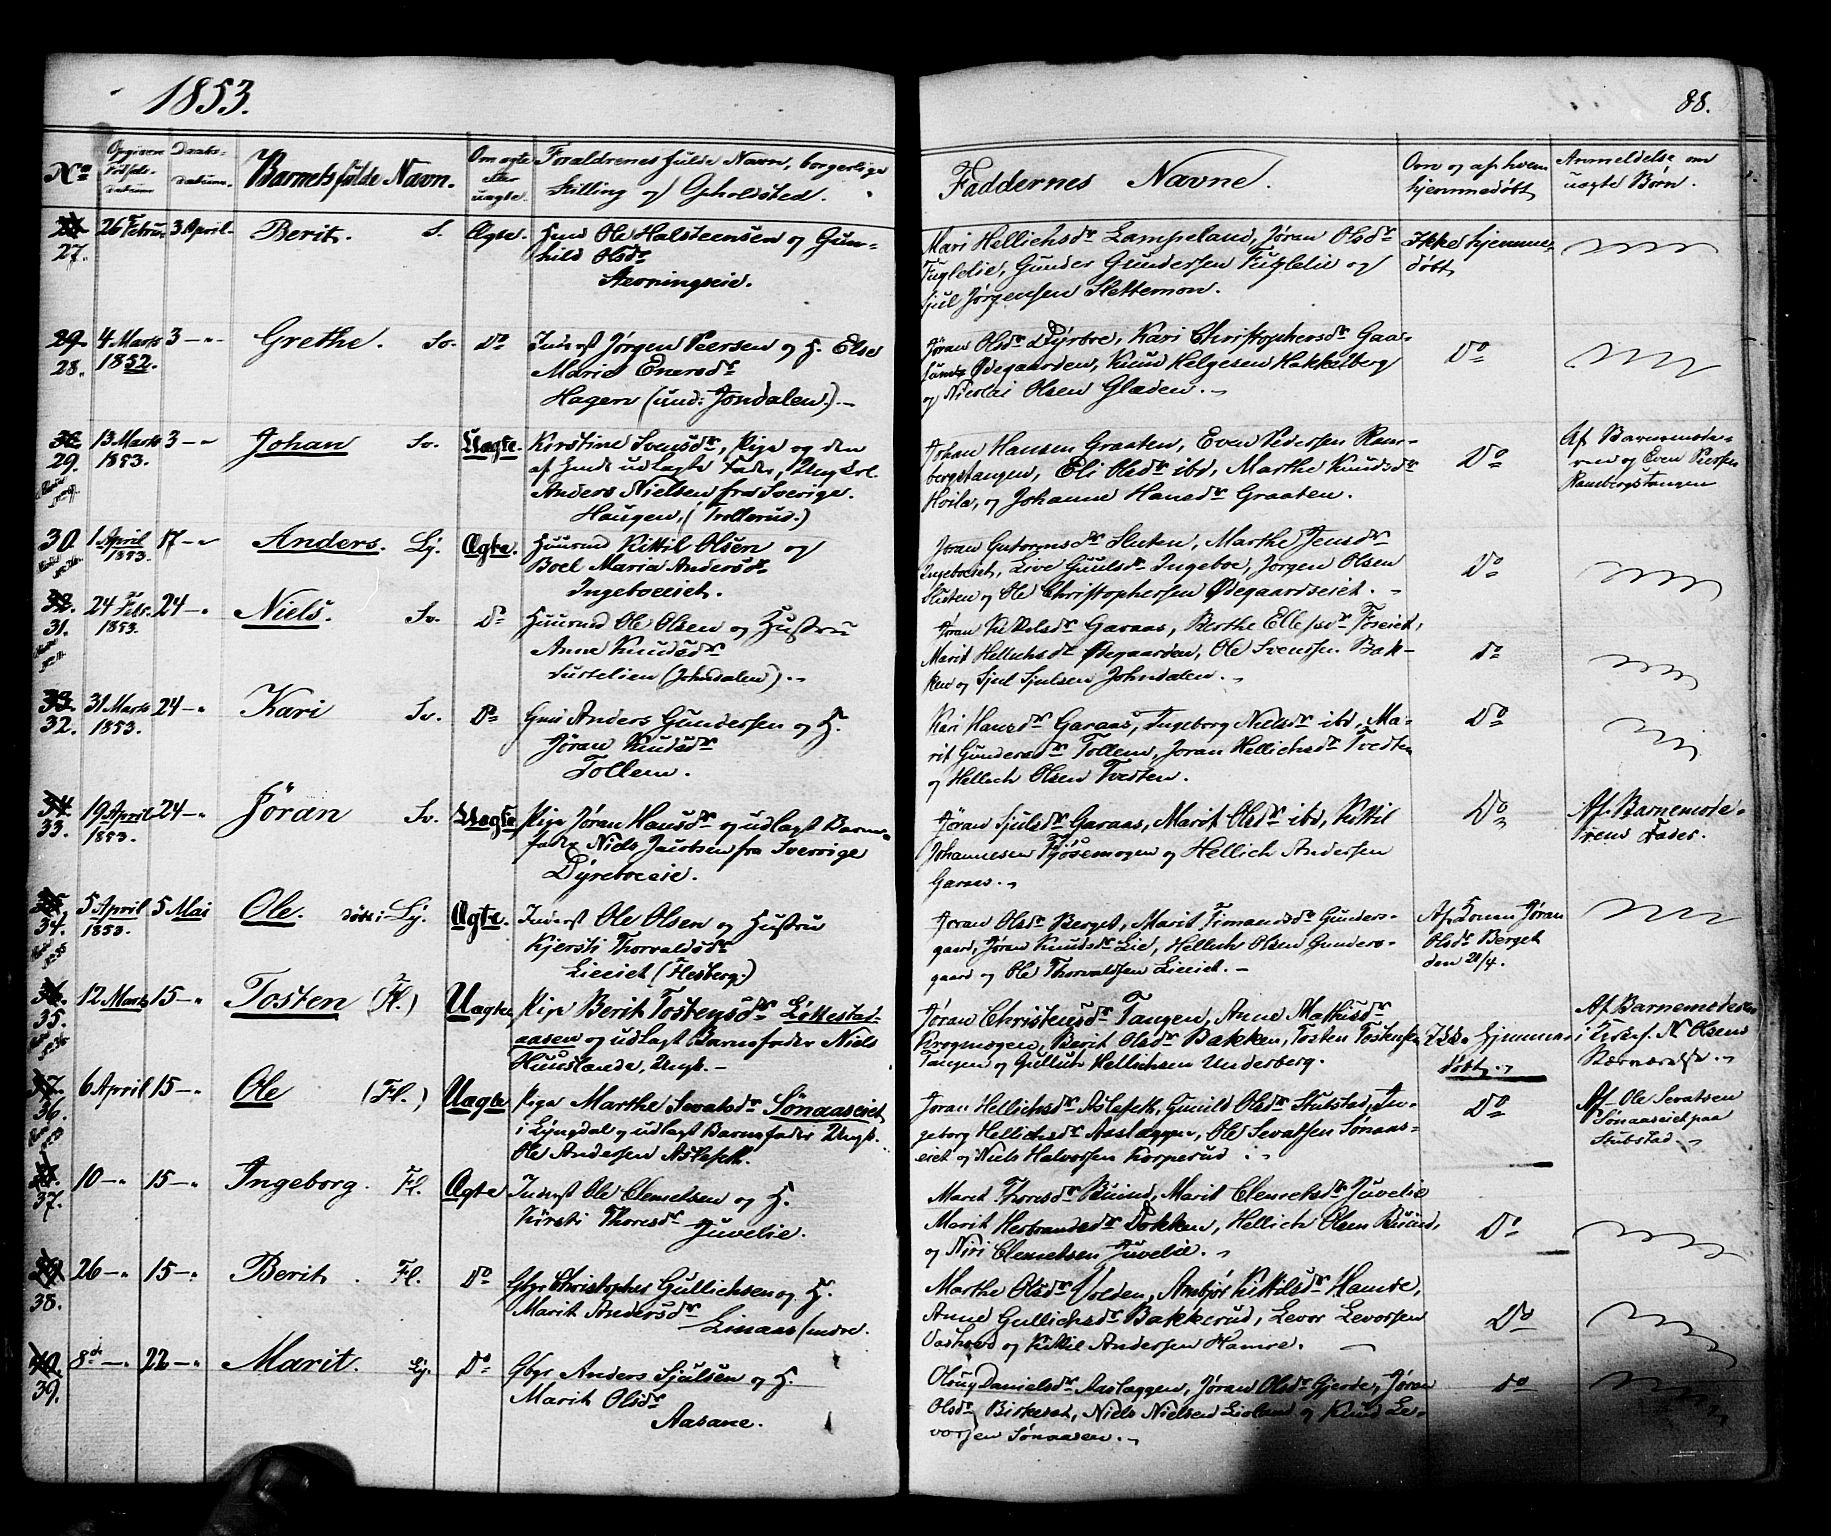 1853.
88.
No
Opgiven Fødsels-datum
Daabs-datum.
Barnets fulde Navn.
Om ægte eller uægte.
Forældrenes fulde Navn, borgerlige
Stilling og Opholdsted.
Faddernes Navne.
Om og af hvem
hjemmedøbt
Anmeldelse om
uægte Børn.
27. 26 Februar 3 April Berit. S. Ægte. Huusd Ole Halsteensen og Gun-
hild Olsdr
Mari Hellichsdr Lampeland, Jøran Olsdr
Fuglelie, Gunder Gundersen Fuglelie og
Sjul Jørgensen Slettemoen.
Ikke hjemme-
døbt
29. 28. 4 Marts 1852. 3 Grethe. Sv. Do Inderst Jørgen Peersen og H. Else
Marie Enersdr
Hagen (und: Jondalen).
Jøran Olsdr Dyrbre, Kari Christophersdr Gaa-
Ødegaarden, Knud Helgesen Hakkelberg
og Nicolai Olsen Gladen.
Do
29. 13 Marts 1853. 3 Johan Sv. Uægte. Kirstine Svensdr, Pige og den
af hende udlagte Fader, Ungkrl
Anders Nielsen fra Sverige.
Haugen, (Trollerud.)
Johan Hansen Graaten, Even Pedersen Ram-
bergstangen, Eli Olsdr ibd, Marthe Knudsdr
Hvila, og Johanne Hansdr Graaten.
Do
Af Barnemode-
ren og Even Peersen
Rambergstangen
30. 1 April 1853. 17 Anders. Ly. Ægte. Huusmd Kittil Olsen og
Boel Maria Andersdr
Ingeboeiet.
Jøran Guttormsdr Sluten, Marthe Jensdr
Ingeboeiet, Live Guulsdr Ingeboe, Jørgen Olsen
Slutten og Ole Christophersen Ødegaardseiet.
Do
32. 31. 24 Febr. 1853. 24 Niels. Sv. Do Huusmd Ole Olsen og Hustru
Anne Knudsdr
(Johndalen).
Jøran Kittelsdr Garaas, Berthe Ellefsdr Foseiet,
Marit Hellichsdr Ødegaarden, Ole Svensen Bak-
ken og Sjul Sjulsen Johndalen.
Do
33. 32. 31 Marts 1853. 24 Kari Sv. Do Gmd Anders Gundersen og H.
Jöran Knudsdr
Tollem.
Kari Hansdr Garaas, Ingeborg Nielsdr ibd, Ma-
rit Gundersdr Tollem, Jøran Hellichsdr Tvedten
og Hellich Olsen Tvedten.
Do
34. 33. 19 April 1853. 24 Jöran Sv. Uægte Pige Jøran Hansdr og udlagt Barne-
fader Niels Jacobsen fra Sverrige
Dyreboeeie.
Jøran Sjulsdr Garaas, Marit Olsdr ibd, Kittil
Johannesen Tjøsemogen og Hellich Andersen
Garaas.
Do
Af Barnemode-
rens Fader.
35. 34. 5 April 1853. 5 Mai Ole. døbt: Ly. Ægte. Inderst Ole Olsen og Hustru
Kjersti Thorvaldsdr
Lieeiet (Flesberg.)
Jøran Olsdr Berget, Marit Timandsdr Gunders-
gaard, Jøran Knudsdr Lie, Hellich Olsen Gunders-
gaard og Ole Thorvaldsen Lieeiet.
Af Jøran
Olsdr Berget
den 28/4.
36. 35. 12 Marts 15 Tosten (Fl.) Uægte, Pige Berit Tostensdr Løktestad-
aasen og udlagt Barnefader Niels
Ungk.
Jøran Christensdr Tangen, Anne Mathisdr
Krogmogen, Berit Olsdr Bakken, Tosten Tostensen
Tangen og Gullich Hellichsen Underberg.
Ikke hjemme-
døbt.
Af Barnemoderen
i N Olsens
Nærværelse.
37. 36. 6 April 15 Ole (Fl.) Uægte Pige Marthe Sevatsdr Sönaaseiet
i Lyngdal og udlagt Barnefader Ungk.
Ole Andersen Aslefett.
Jøran Hellichsdr Aslefeth, Gunild Olsdr Stubstad, In-
geborg Hellichsdr Aaslaggen, Ole Sevatsen Sønaas-
eiet og Niels Halvorsen Korperud.
Do
Af Ole Sevatsen
Sønaaseiet paa
Stubstad.
37. 10 15 Ingeborg. Fl. Ægte Inderst Ole Clemetsen og H.
Kirsti Thoresdr
Juvelie.
Marit Thoresdr Buind, Marit Clemetsdr Juvelie
Marit Herbrandsdr Dokken, Hellich Olsen Buind,
og Niri Clemetsen Juvelie.
Do
39. 38. 26 15 Berit. Fl. Do Gbgr Christopher Gullichsen og H.
Marit Andersdr
Linaas (nedre.
Marthe Olsdr Volden, Ambjør Kittilsdr Hamre,
Anne Gullichsdr Bakkerud, Levor Levorsen
og Kittil Andersen Hamre.
Do
40. 39. 8de 22 Marit. Ly. Do Gbgr Anders Sjulsen og H.
Marit Olsdr
Aasane.
Oloug Danielsdr Aaslaggen, Jøran Olsdr Gjerde, Jøran
Olsdr Birkeset, Niels Nielsen Lioland og Knud Le-
vorsen Sønaasen.
Do